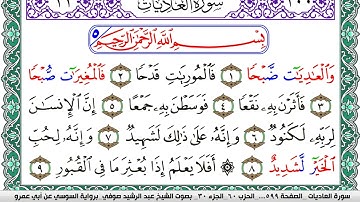 سورة العاديات
بِسْمِ اللَّهِ الرَّحْمَٰنِ الرَّحِيمِ
وَالْعَٰدِيَٰت ضَّبْحًا ١ فَالْمُورِيَٰتِ قَدْحًا ٢ فَالْمُغِيرَٰت صُّبْحًا
٣ فَأَثَرْنَ بِهِۦ نَقْعًا ٤ فَوَسَطْنَ بِهِۦ جَمْعًا ٥ إِنَّ الْإِنسَٰنَ
لِرَبِّهِۦ لَكَنُودٌ ٦ وَإِنَّهُۥ عَلَىٰ ذَٰلِكَ لَشَهِيدٌ ٧ وَإِنَّهُۥ لِحُبِّ
الْخَيْر لَّشَدِيدٌ ٨ أَفَلَا يَعْلَمُ إِذَا بُعْثِرَ مَا فِي الْقُبُورِ ٩
سورة العاديات . الصفحة ٥٩٩... الحزب ٦٠ الجزء ٣٠ . بصوت الشيخ عبد الرشيد صوفي . برواية السوسي عن أبي عمرو